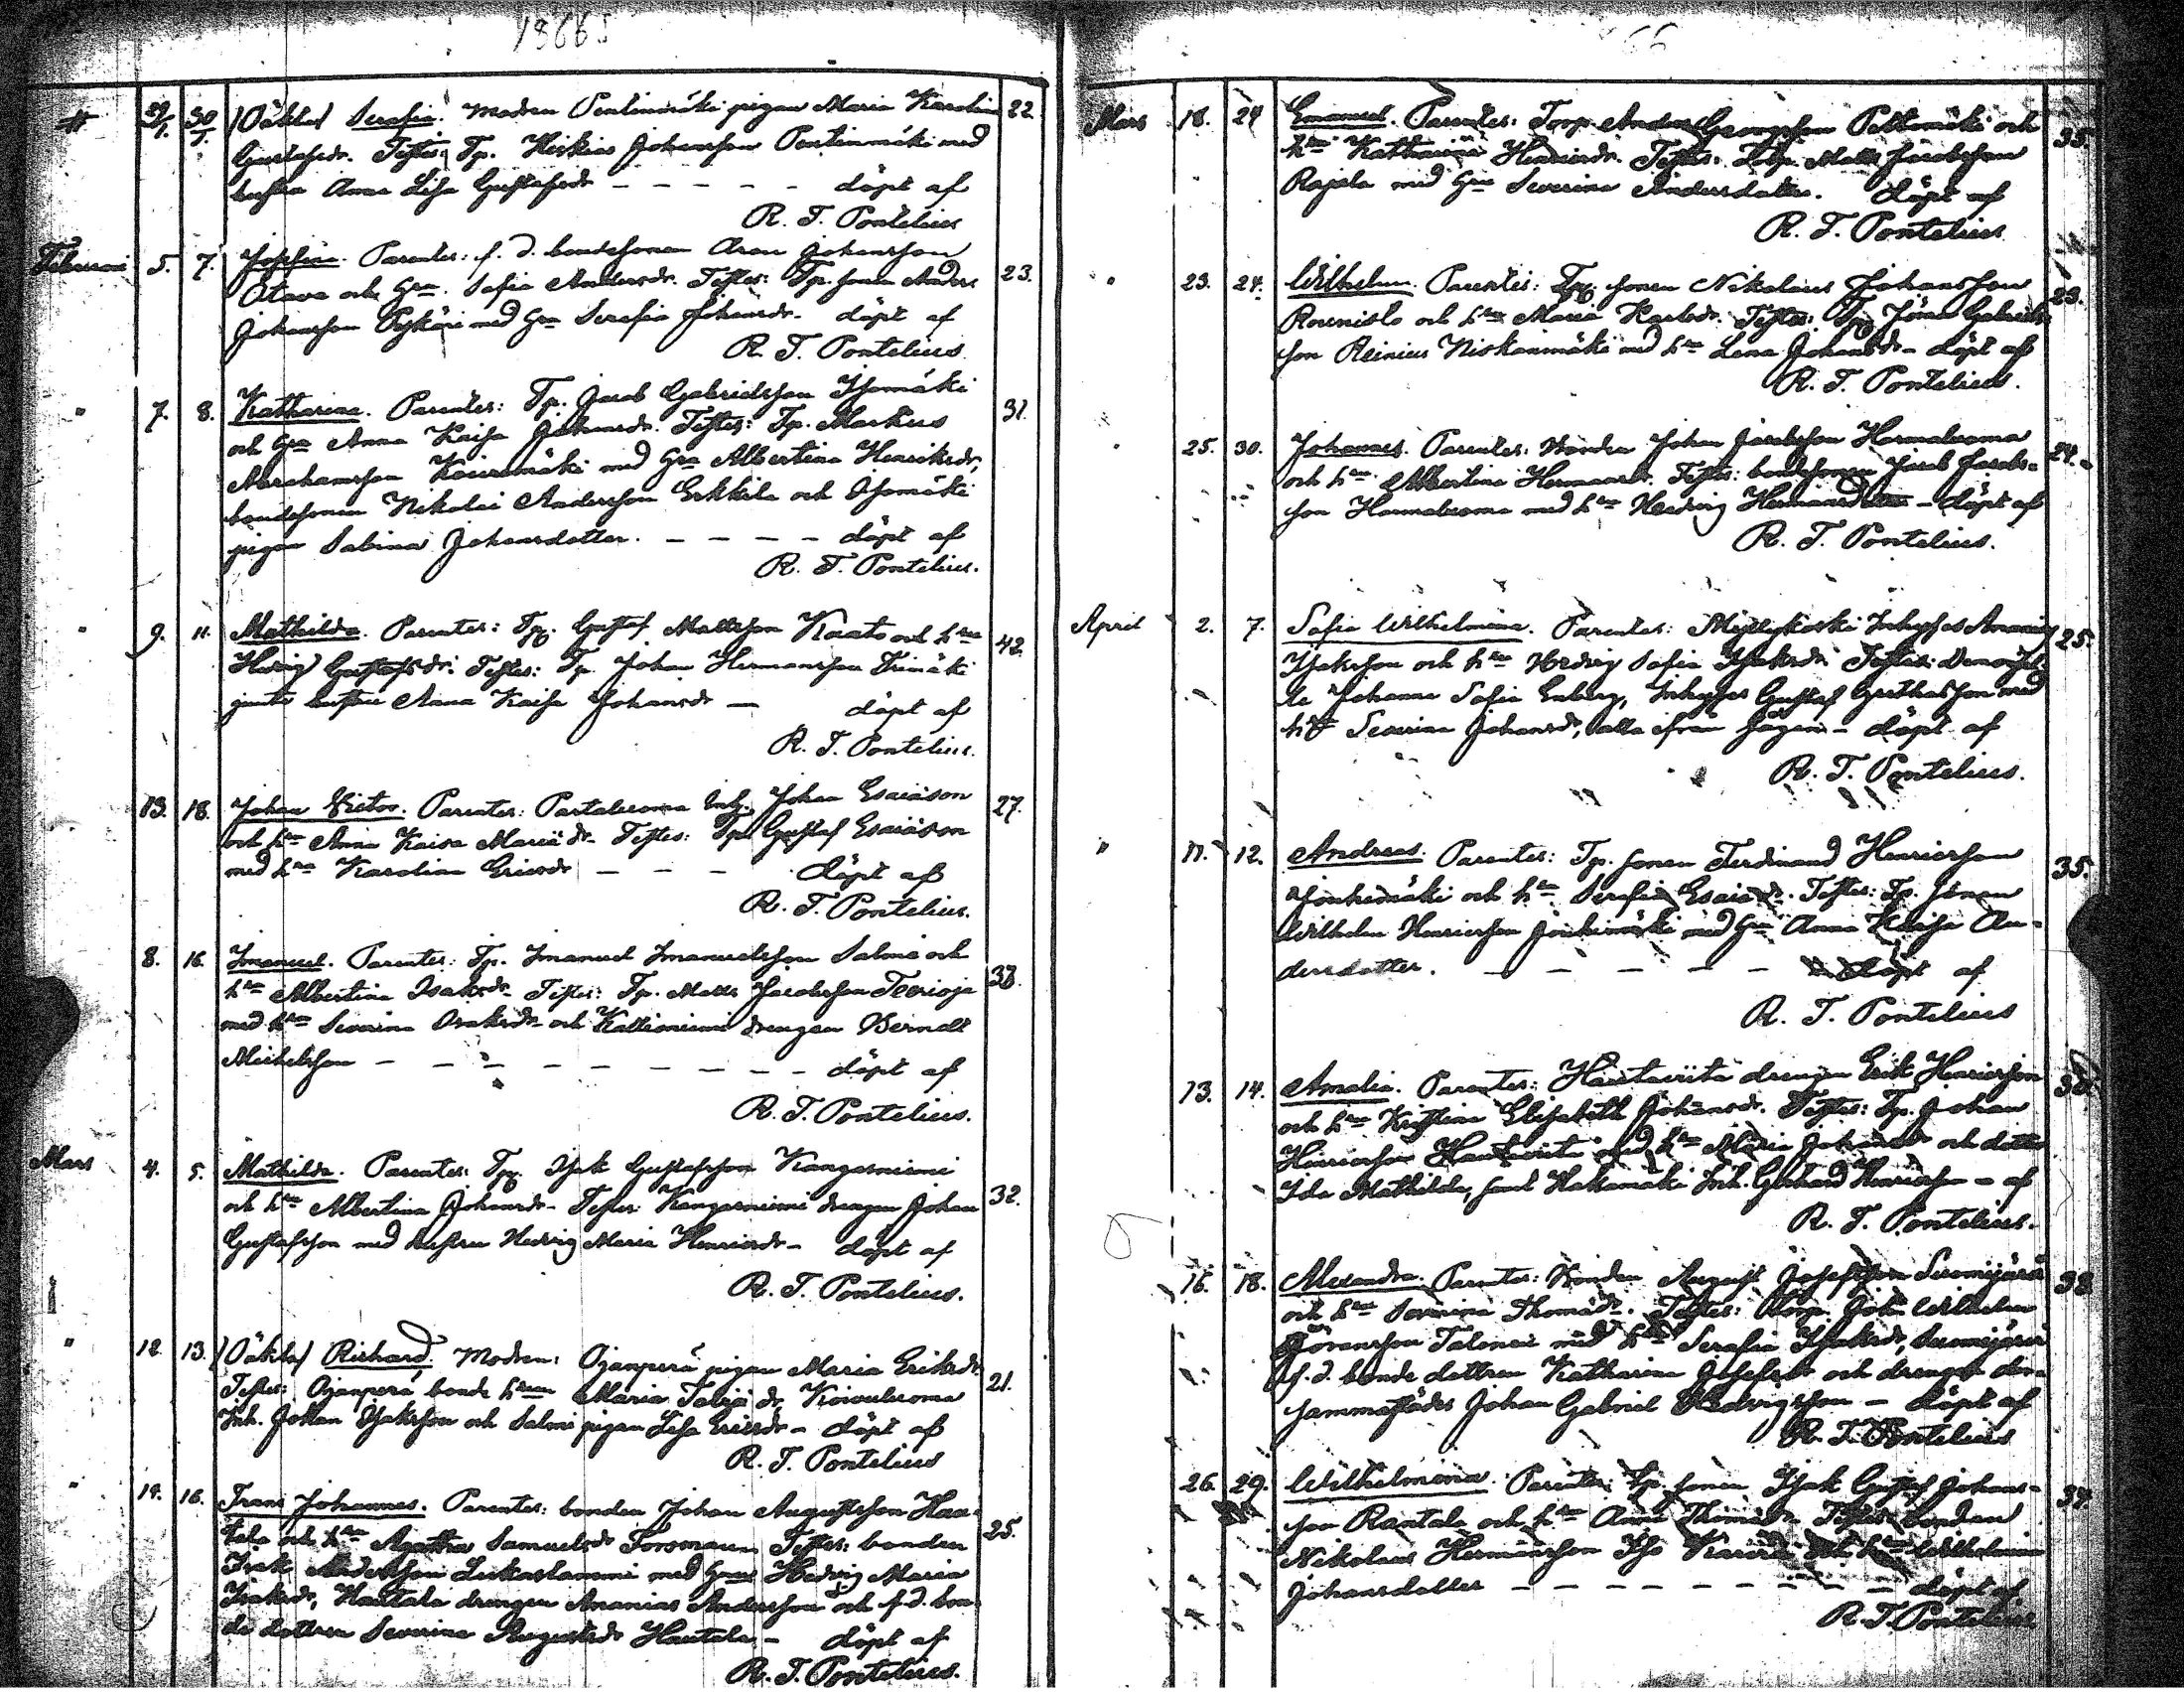 1866
29/1. 30/1. (Oäkta) Serafia. Modren Pentinmäki pigan Maria Karolina 22.
Gustafsdr. Testes: Tp. Heskias Johansson Pentinmäki med
hustru Anna Lisa Gustafsdr – – – – – döpt af
R. T. Pontelius
Februari 5. 7. Josefina. Parentes: f. d. bondesonen Aron Johansson
Otava och hrn. Sofia Andersdr. Testes: Tp. sonen Anders 23.
Johansson med hrn Serafia Johansdr – döpt af
R. T. Pontelius
" 7. 8. Katharina. Parentes: Tp. Jacob Gabrielsson Isomäki 31.
och hrn Anna Kaisa Johansdr. Testes: Tp. Markus
Abrahamsson med hrn Albertina Henriksdr,
bondesonen Nikolai Andersson Erkkila och Isomäki
pigan Sabina Johansdotter. – – – – döpt af
R. T. Pontelius.
" 9. 11. Mathilda. Parentes: Tp. Gustaf Mattsson Kaato och hrn 42.
Hedvig Gustafsdr. Testes: Tp. Johan Hermansson
jemte hustru Anna Kaisa Johansdr – döpt af
R. T. Pontelius.
13. 18. Johan Victor. Parentes: Partaluoma Inh. Johan Esaiäson 27.
och hrn Anna Kaisa Mariädr – Testes: Tp. Gustaf Esaiäson
med hrn Karolina Ericsdr – – – döpt af
R. T. Pontelius.
8. 16. Imanuel. Parentes: Tp. Imanuel Imanuelsson Salmi och
hrn Albertina Isaksdr – Testes: Tp. Matts Jacobsson Teerioja 33.
med hrn Severina Isaksdr – och Kallioniemi drengen Berndt
Michelsson – – – – – – – – – döpt af
R. T. Pontelius.
Mars 4. 5. Mathilda. Parentes: Tp. Isak Gustafsson Kangasniemi
och hrn Albertina Johansdr – Testes: Kangasniemi drengen Johan 32.
Gustafsson med hustru Hedvig Maria Henricsdr – döpt af
R. T. Pontelius.
" 12. 13. (Oäkta) Richard. Modren: Ojanperä pigan Maria Eriksdr.
Testes: Ojanperä bonde hrun Maria dr, Koivuluoma 21.
Inh. Johan Isaksson och Salmi pigan Lisa Ericsdr – döpt af
R. T. Pontelius
" 14. 16. Frans Johannes. Parentes: bonden Johan Augustsson Hau-
tala och hrn Agatha Samuelsdr Forsmann Testes: bonden 25.
Isak Andersson med hrn Hedvig Maria
Isaksdr, Hautala drengen Ananias Andersson och f. d. bon-
de dottren Severina Augustsdr Hautala – döpt af
R. T. Pontelius.
66
Mars 18. 24 Emanuel. Parentes: Torp. Anders Georgsson och 35.
hrn Katharina Henricsdr. Testes: Torp. Matts Jacobsson
Rajala med hrn Severina Andersdotter. döpt af
R. T. Pontelius
" 23. 24. Wilhelm. Parentes: Tp. sonen Nikolaus Johansson
och hrn Maria Karlsdr. Testes: Tp. sonen Gabriels- 23.
son Reinius Niskanmäki med hrn Lena Johansdr – döpt af
R. T. Pontelius.
" 25. 30. Johannes. Parentes: Bonden Johan Jacobsson Harmaluoma 24.
och hrn Albertina Hermansdr. Testes: bondesonen Jacob Jacobs-
son Harmaluoma med hrn Hedvig Hermansdotter – döpt af
R. T. Pontelius.
April 2. 7. Sofia Wilhelmina. Parentes: Myllykoski Inhyses Ananias 25.
Isaksson och hrn Hedvig Sofia Isaksdr. Testes: Demoisel-
le Johanna Sofia Enberg, Inhyses Gustaf med
hrn Severina Johansdr, alla från – döpt af
R. T. Pontelius.
" 11. 12. Andreas. Parentes: Tp. sonen Ferdinand Henricsson 35.
och hrn Serafia Esaiädr. Testes: Tp. sonen
Wilhelm Henricsson med hrn Anna Kaisa An-
dersdotter. – – – – – döpt af
R. T. Pontelius
13. 14. Amalia. Parentes: Hautaviita drengen Erik Henricsson
och hrn Kristina Elisabeth Johansdr. Testes: Tp. Johan
Henricsson Hautaviita med hrn Maria Johansdr och dotter
Ida Mathilda, samt Hakamäki Inh. Gerhard Henricsson – af
R. T. Pontelius.
16. 18. Alexandra. Parentes: Bonden August Josefsson Suomijärvi 38.
och hrn Severina Thomädr. Testes: Torp. Joh. Wilhelm
med hrn Serafia Isaksdr, Suomijärvi
f. d. bonde dottren Katharina Josefsdr och drengen der-
sammastädes Johan Gabriel Hedvigsson – döpt af
R. T. Pontelius
26. 29. Wilhelmina. Parentes: Tp. sonen Isak Gustaf Johans-
son Rantala och hrn Anna Thomädr Testes: bonden 37.
Nikolaus Hermansson Iso och hrn Wilhelmina
Johansdotter – – – – – – – – – döpt af
R. T. Pontelius